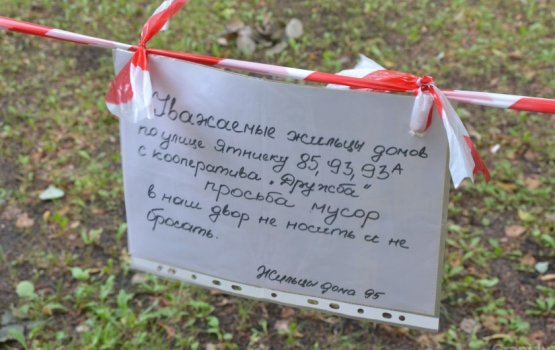 Уважаемые жильцы домов
по улице Ятниеку 85, 93, 93А
с кооператива "Дружба"
просьба мусор
в наш двор не носить и не
бросать.
Жильцы дома 95